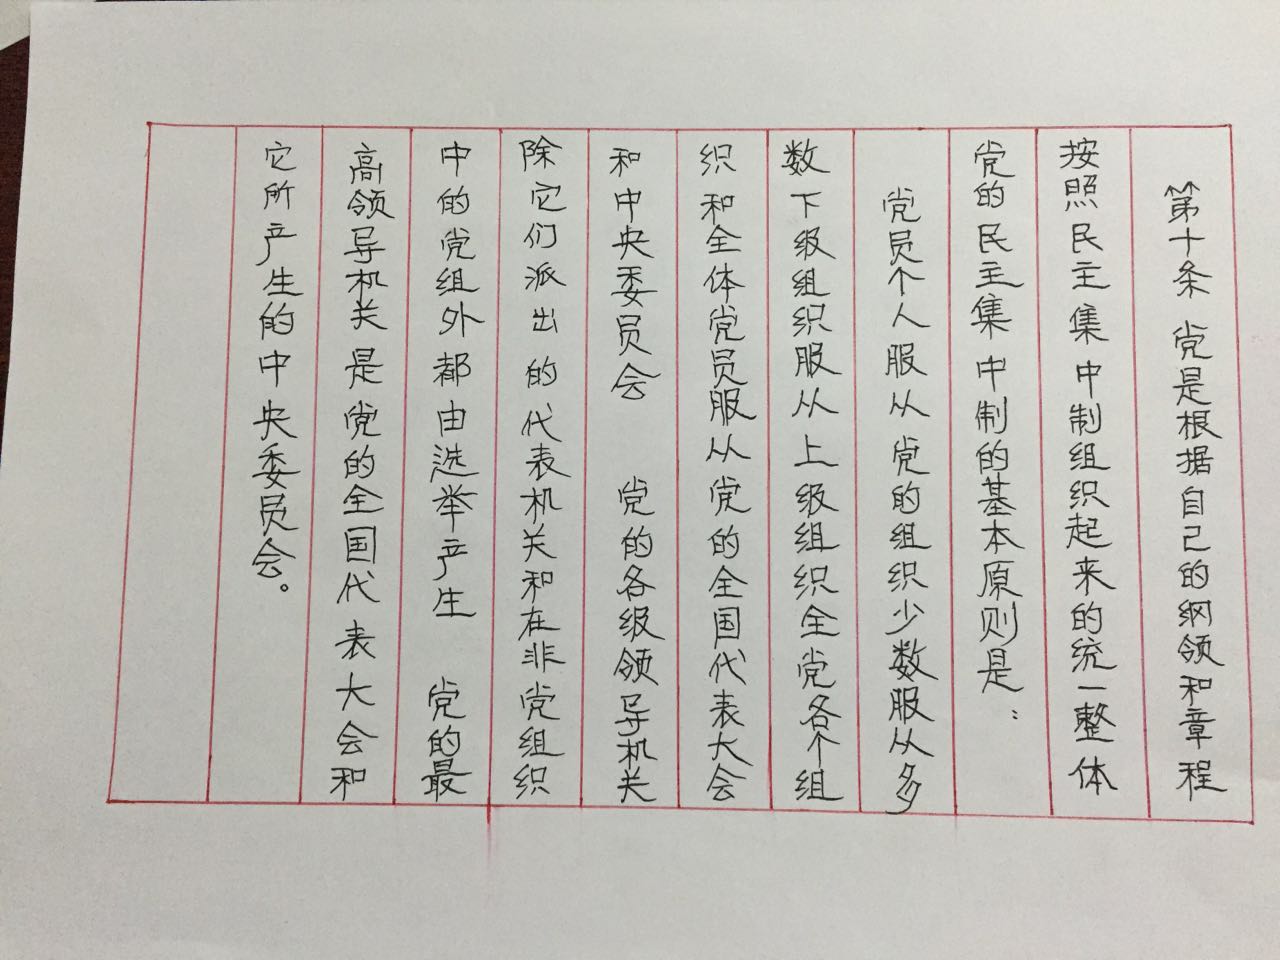 第十条 党是根据自己的纲领和章程
按照民主集中制组织起来的统一整体
党的民主集中制的基本原则是：
党员个人服从党的组织少数服从多
数下级组织服从上级组织全党各个组
织和全体党员服从党的全国代表大会
和中央委员会 党的各级领导机关
除它们派出的代表机关和在非党组织
中的党组外都由选举产生 党的最
高领导机关是党的全国代表大会和
它所产生的中央委员会。